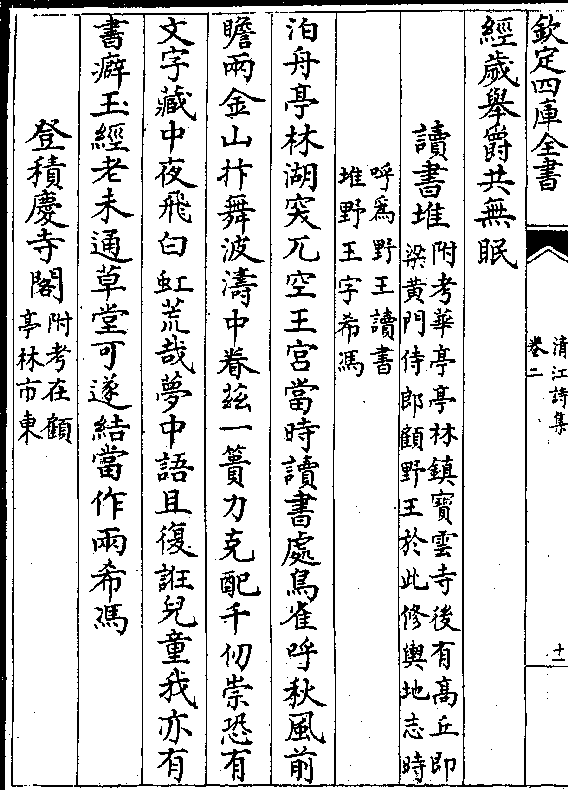 欽定四庫全書
清江詩集
卷二
十二
經歲舉爵共無眠
讀書堆
附考華亭亭林鎮寶雲寺後有髙丘即
梁黄門侍郎顧野王於此修輿地志時
呼爲野王讀書
堆野王字希馮
泊舟亭林湖突兀空王宮當時讀書處鳥雀呼秋風前
瞻兩金山抃舞波濤中眷兹一簣力克配千仞崇恐有
文字藏中夜飛白虹荒哉夢中語且復誑兒童我亦有
書癖玉經老未通草堂可遂結當作兩希馮
登積慶寺閣
附考在顧
亭林市東